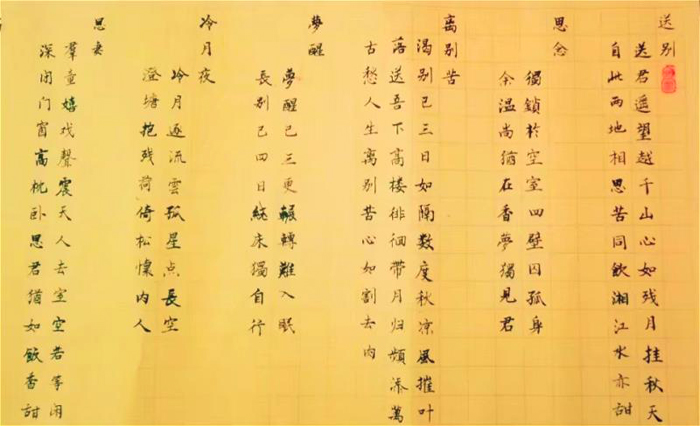 送别
送君遥望越千山心如残月挂秋天
自此两地相思苦同飲湘江水亦甜
思念
獨鎖於空室四壁囚孤身
余温尚猶在香夢獨見君
离别苦
渴别已三日如隔数度秋凉風摧叶
落送吾下高楼徘徊带月归頻添萬
古愁人生离别苦心如割去肉
夢醒
夢醒已三更輾轉難入眠
長别已四日繞床獨自行
冷月夜
冷月逐流雲孤星点長空
澄塘抱残荷倚松懷内人
思妻
羣童嬉戏聲震天人去室空若等闲
深闭门窗高枕卧思君猶如飲香甜